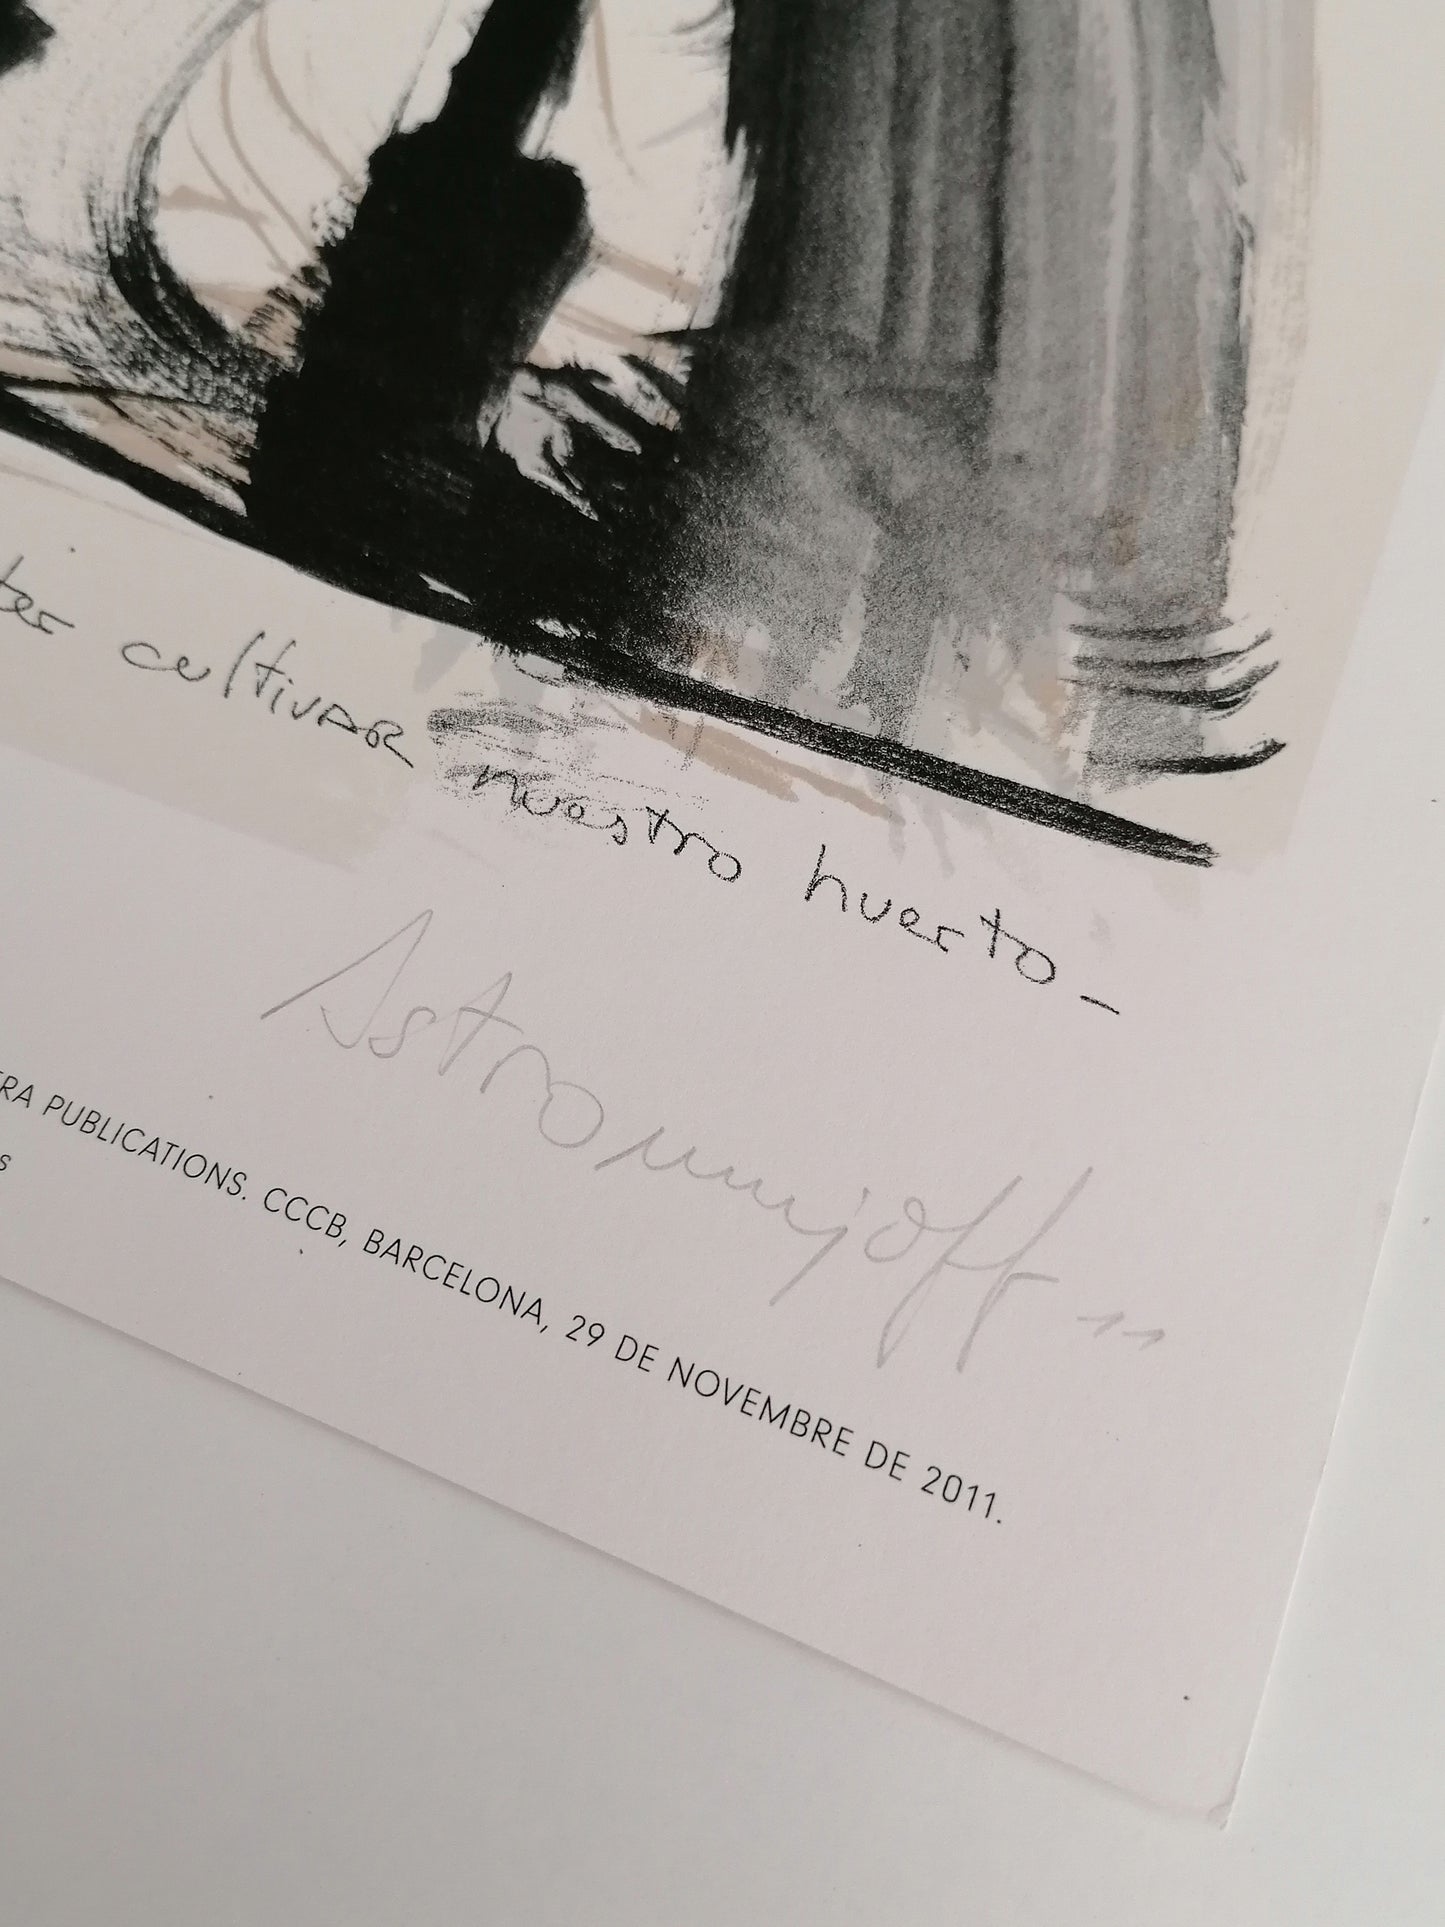 cultivar nuestro huerto -
Astromujoff 11
PUBLICATIONS. CCCB, BARCELONA, 29 DE NOVEMBRE DE 2011.